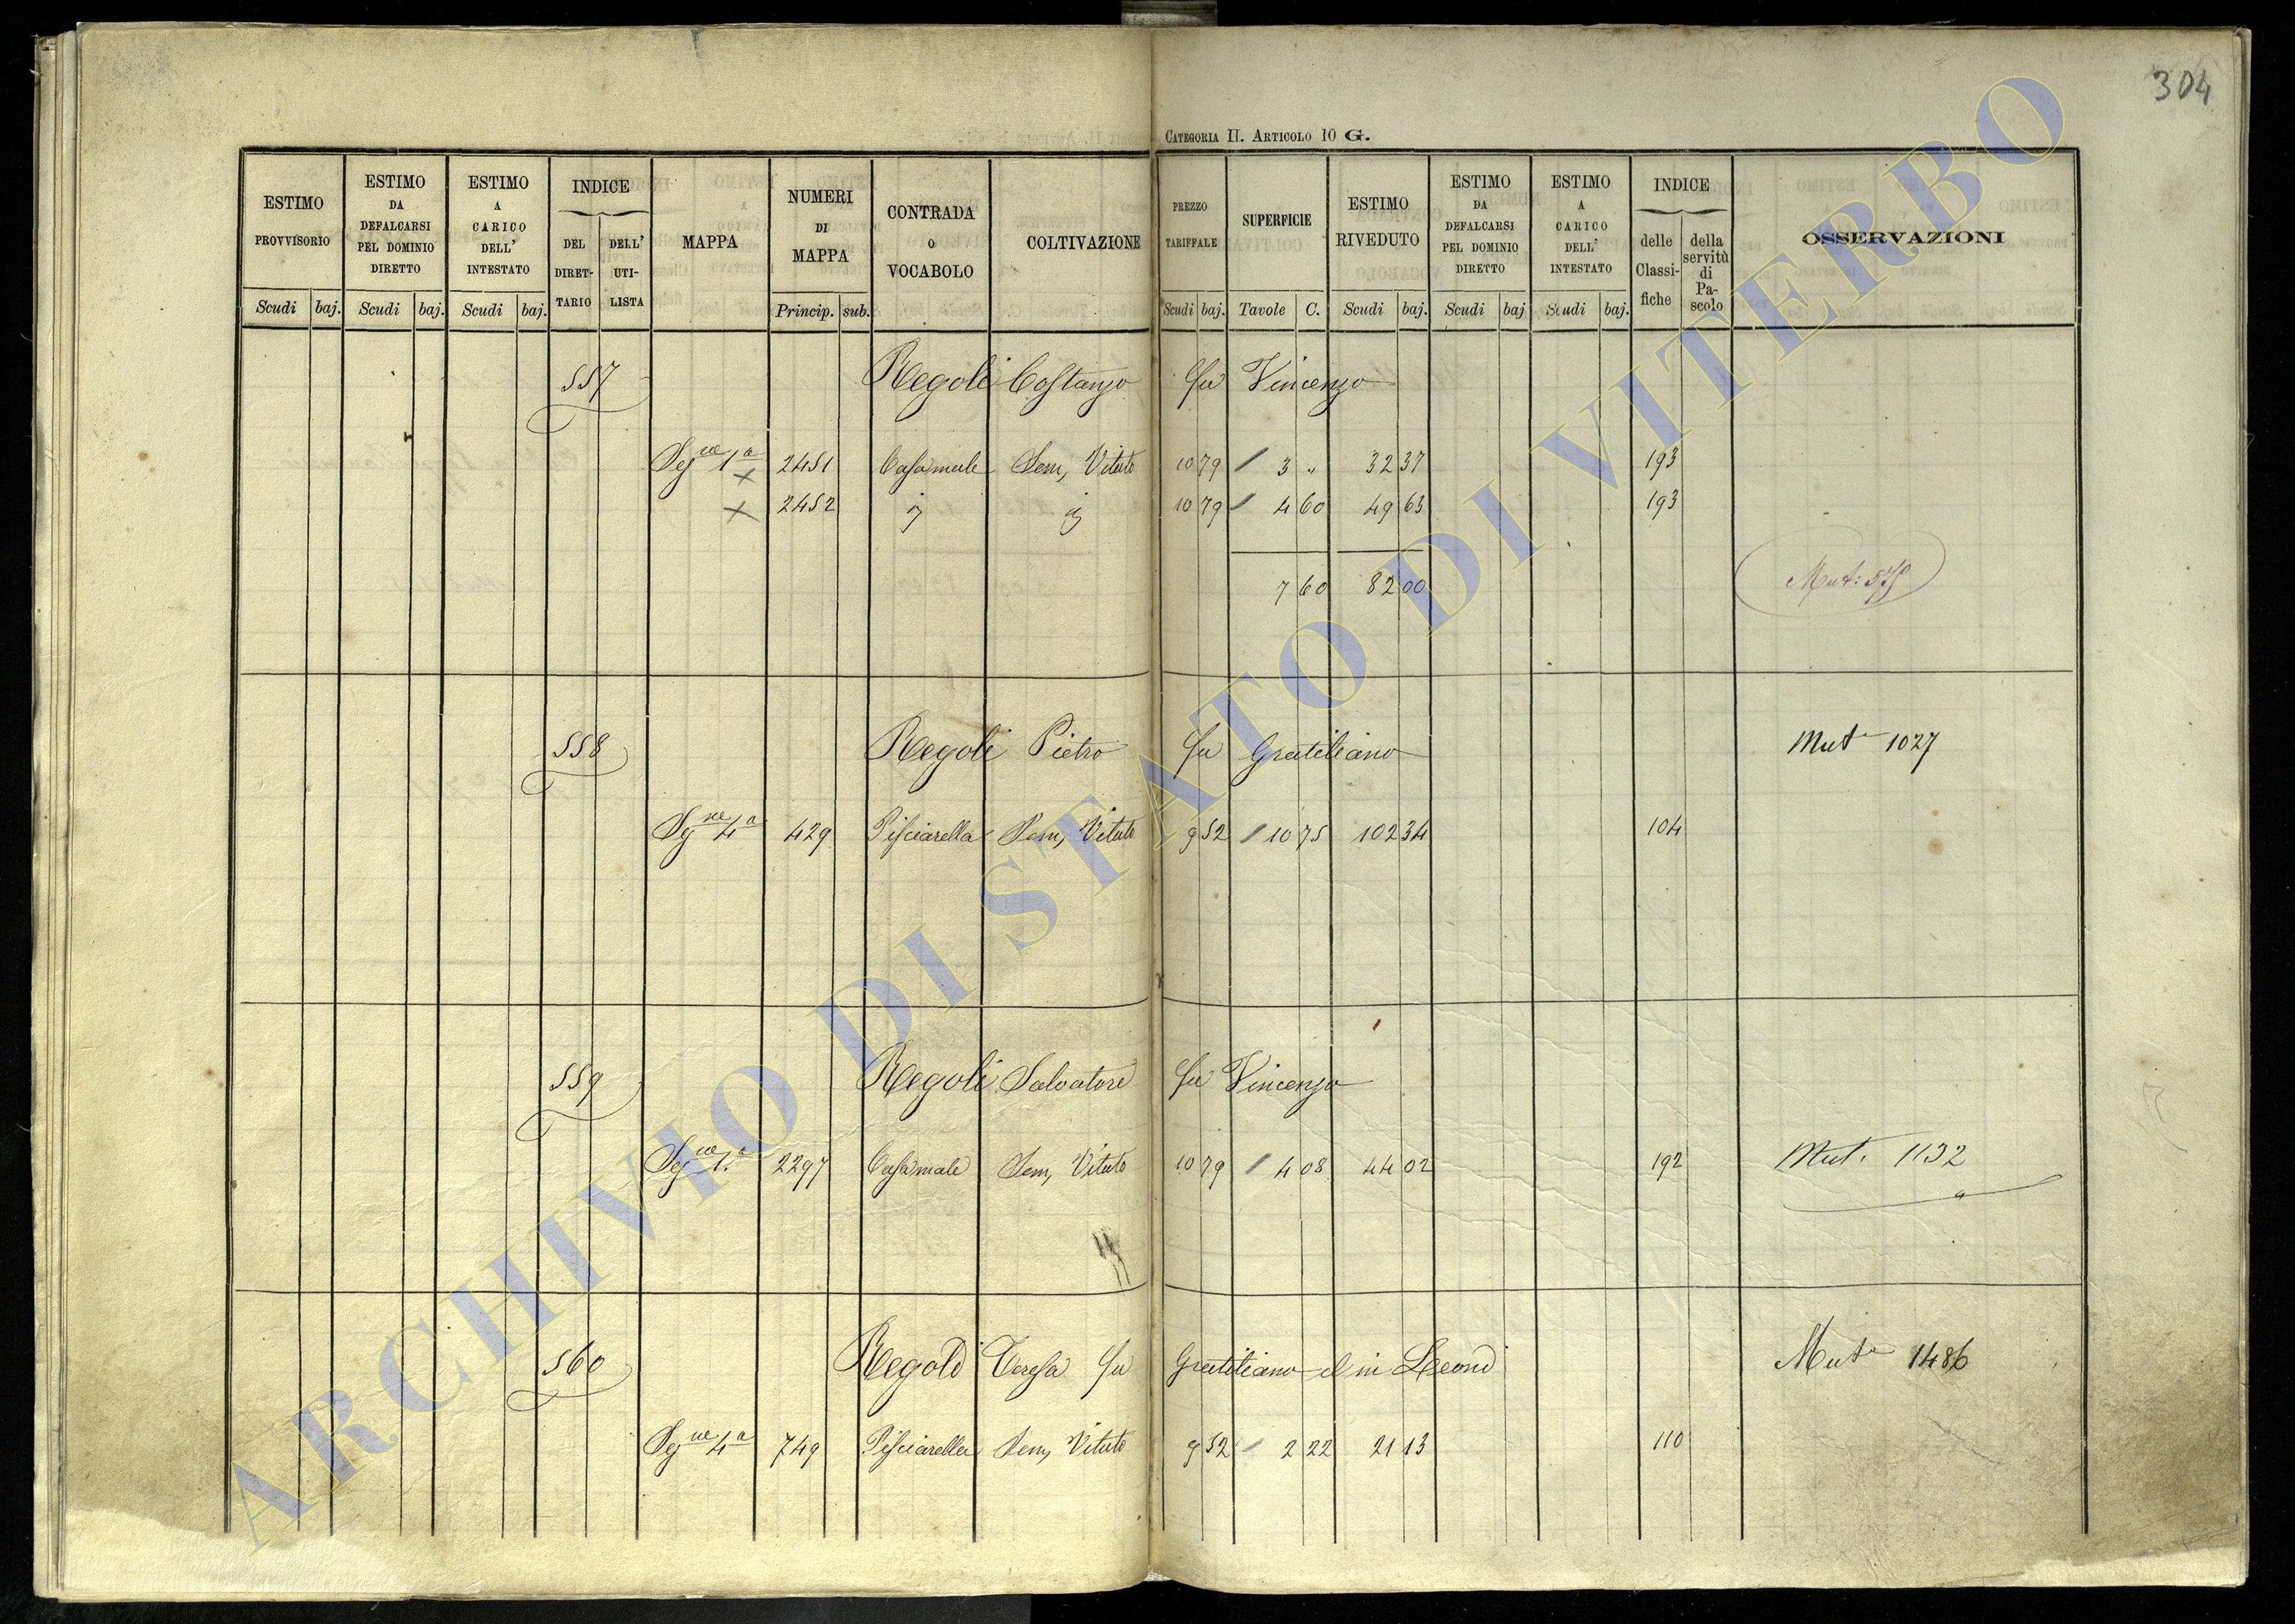 304
CATEGORIA II. ARTICOLO 10 G.
ESTIMO PROVVISORIO Scudi baj.
ESTIMO DA DEFALCARSI PEL DOMINIO DIRETTO Scudi baj.
ESTIMO A CARICO DELL' INTESTATO Scudi baj.
INDICE DEL DIRETTARIO DELL' UTILISTA
MAPPA
NUMERI DI MAPPA Princip. sub.
CONTRADA O VOCABOLO
COLTIVAZIONE
PREZZO TARIFFALE Scudi baj.
SUPERFICIE Tavole C.
ESTIMO RIVEDUTO Scudi baj.
ESTIMO DA DEFALCARSI PEL DOMINIO DIRETTO Scudi baj
ESTIMO A CARICO DELL' INTESTATO Scudi baj.
INDICE delle Classifiche della servitù di Pascolo
OSSERVAZIONI
557 Regoli Costanzo fu Vincenzo
Segne 1a 2451 Casamale Sem, Vitato 10 79 3 " 32 37 193
2452 10 79 4 60 49 63 193
7 60 82 00 Mut:
558 Regoli Pietro fu Gratiliano Mut 1027
Sgne 4a 429 Pisciarella Sem, Vitato 9 52 10 75 102 34 104
559 Regoli Salvatore fu Vincenzo
Segne 1a 2297 Casamale Sem, Vitato 10 79 4 08 44 02 192 Mut. 1132
560 Regoli Teresa fu Gratiliano in Leoni Mut 1486
Segne 4a 749 Pisciarella Sem, Vitato 9 52 2 22 21 13 110
ARCHIVIO DI STATO DI VITERBO